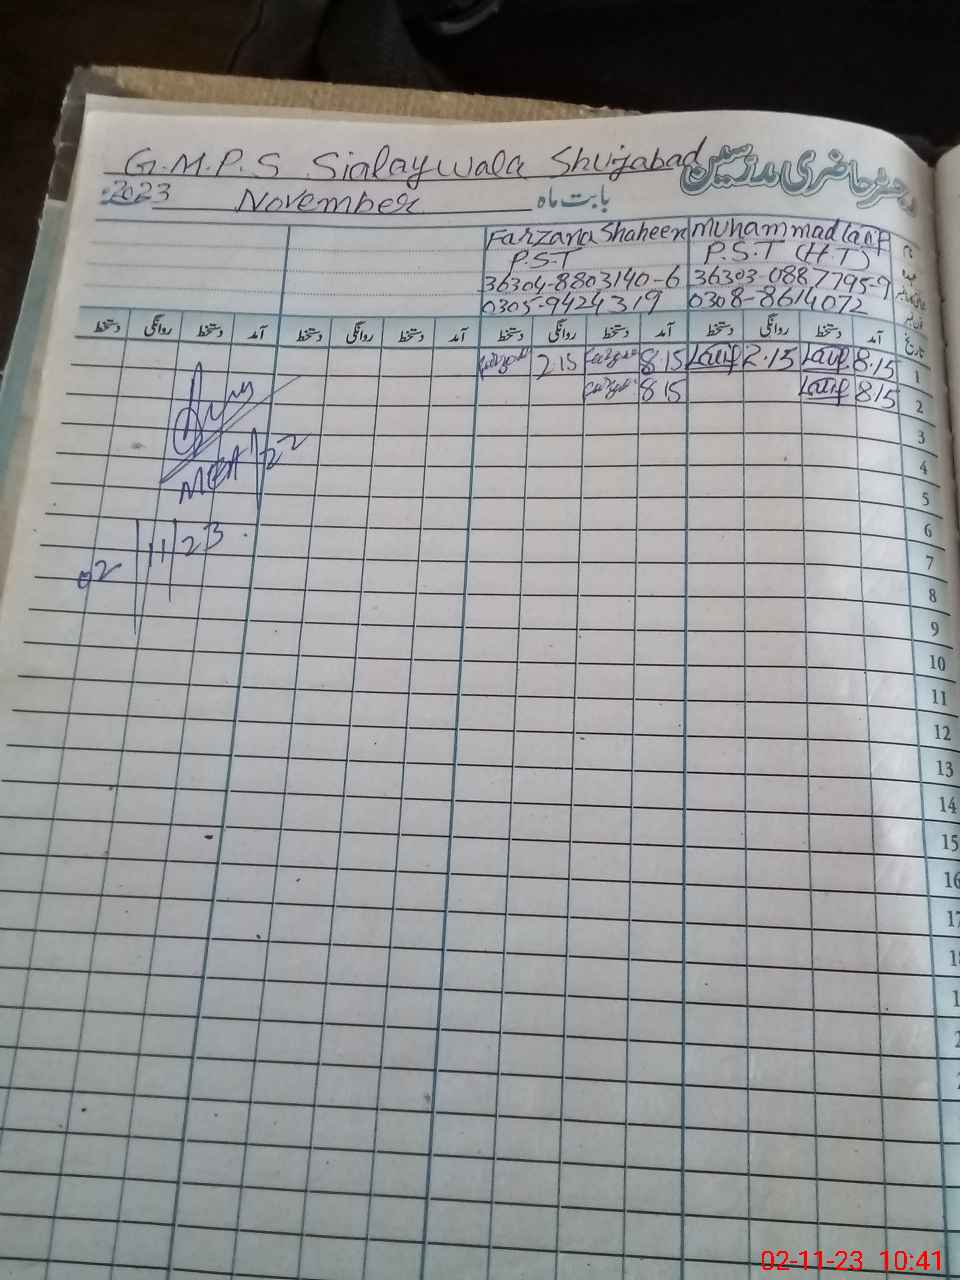 G.M.P.S Sialaywala Shujabad رجسٹر حاضری مدرسین
2023 November بابت ماہ
Farzana Shaheen Muhammad Latif
P.S.T P.S.T (H.T)
36304-8803140-6 36303-0887795-9
0305-9424319 0308-8614072
دستخط روانگی دستخط آمد دستخط روانگی دستخط آمد دستخط روانگی دستخط آمد دستخط روانگی دستخط آمد تاریخ
2.15 8.15 Latif 2.15 Latif 8.15 1
8.15 Latif 8.15 2
3
4
MEA
5
6
02/11/23
7
8
9
10
11
12
13
14
15
16
02-11-23 10:41